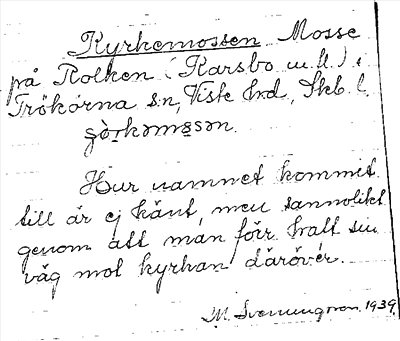 Kyrkemossen Mosse
på Rolken (Karsbo m.fl.) i
Trökörna sn, Viste hd, Skb. l.
Hur namnet kommit
till är ej känt, men sannolikt
genom att man förr haft sin
väg mot kyrkan däröver.
M. Svenungsson. 1939.